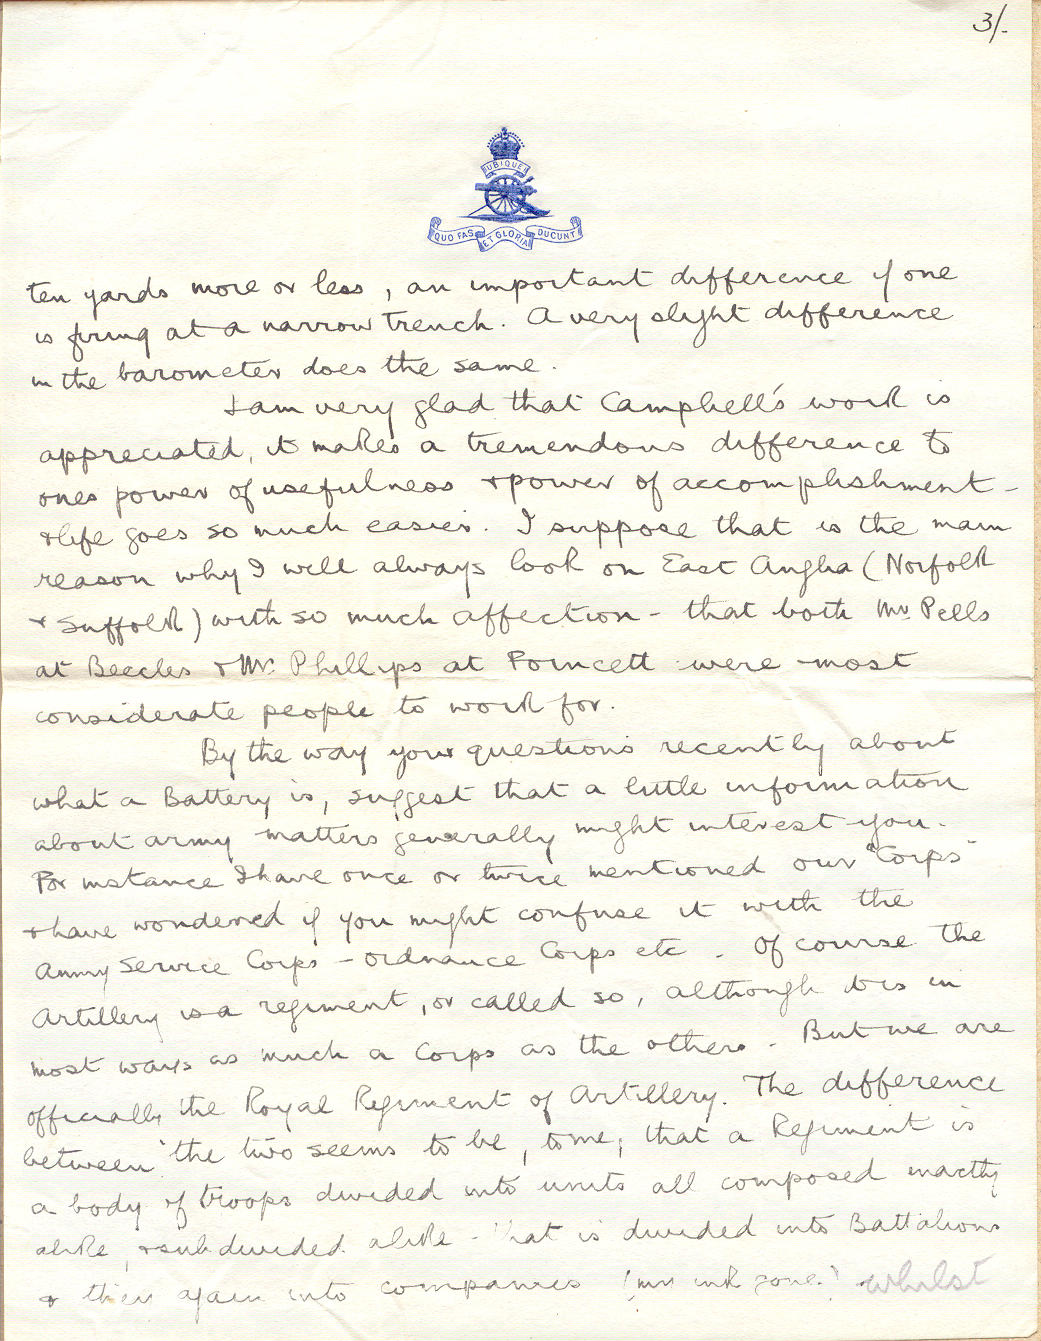 3/-
UBIQUE
QUO FAS ET GLORIA DUCUNT
ten yards more or less, an important difference if one
is firing at a narrow trench. A very slight difference
in the barometer does the same.
I am very glad that Campbell's work is
appreciated, it makes a tremendous difference to
ones power of usefulness & power of accomplishment -
& life goes so much easier. I suppose that is the main
reason why I will always look on East Anglia (Norfolk
& Suffolk) with so much affection - that both Mr. Pells
at Beccles & Mr. Phillips at Forncett were most
considerate people to work for.
By the way your questions recently about
what a Battery is, suggest that a little information
about army matters generally might interest you.
For instance I have once or twice mentioned our "Corps"
& have wondered if you might confuse it with the
Army Service Corps - Ordnance Corps etc. Of course the
Artillery is a regiment, or called so, although it is in
most ways as much a Corps as the others. But we are
officially the Royal Regiment of Artillery. The difference
between the two seems to be, to me, that a Regiment is
a body of troops divided into units all composed exactly
alike, & subdivided alike - that is divided into Battalions
& then again into companies (my ink gone!) whilst